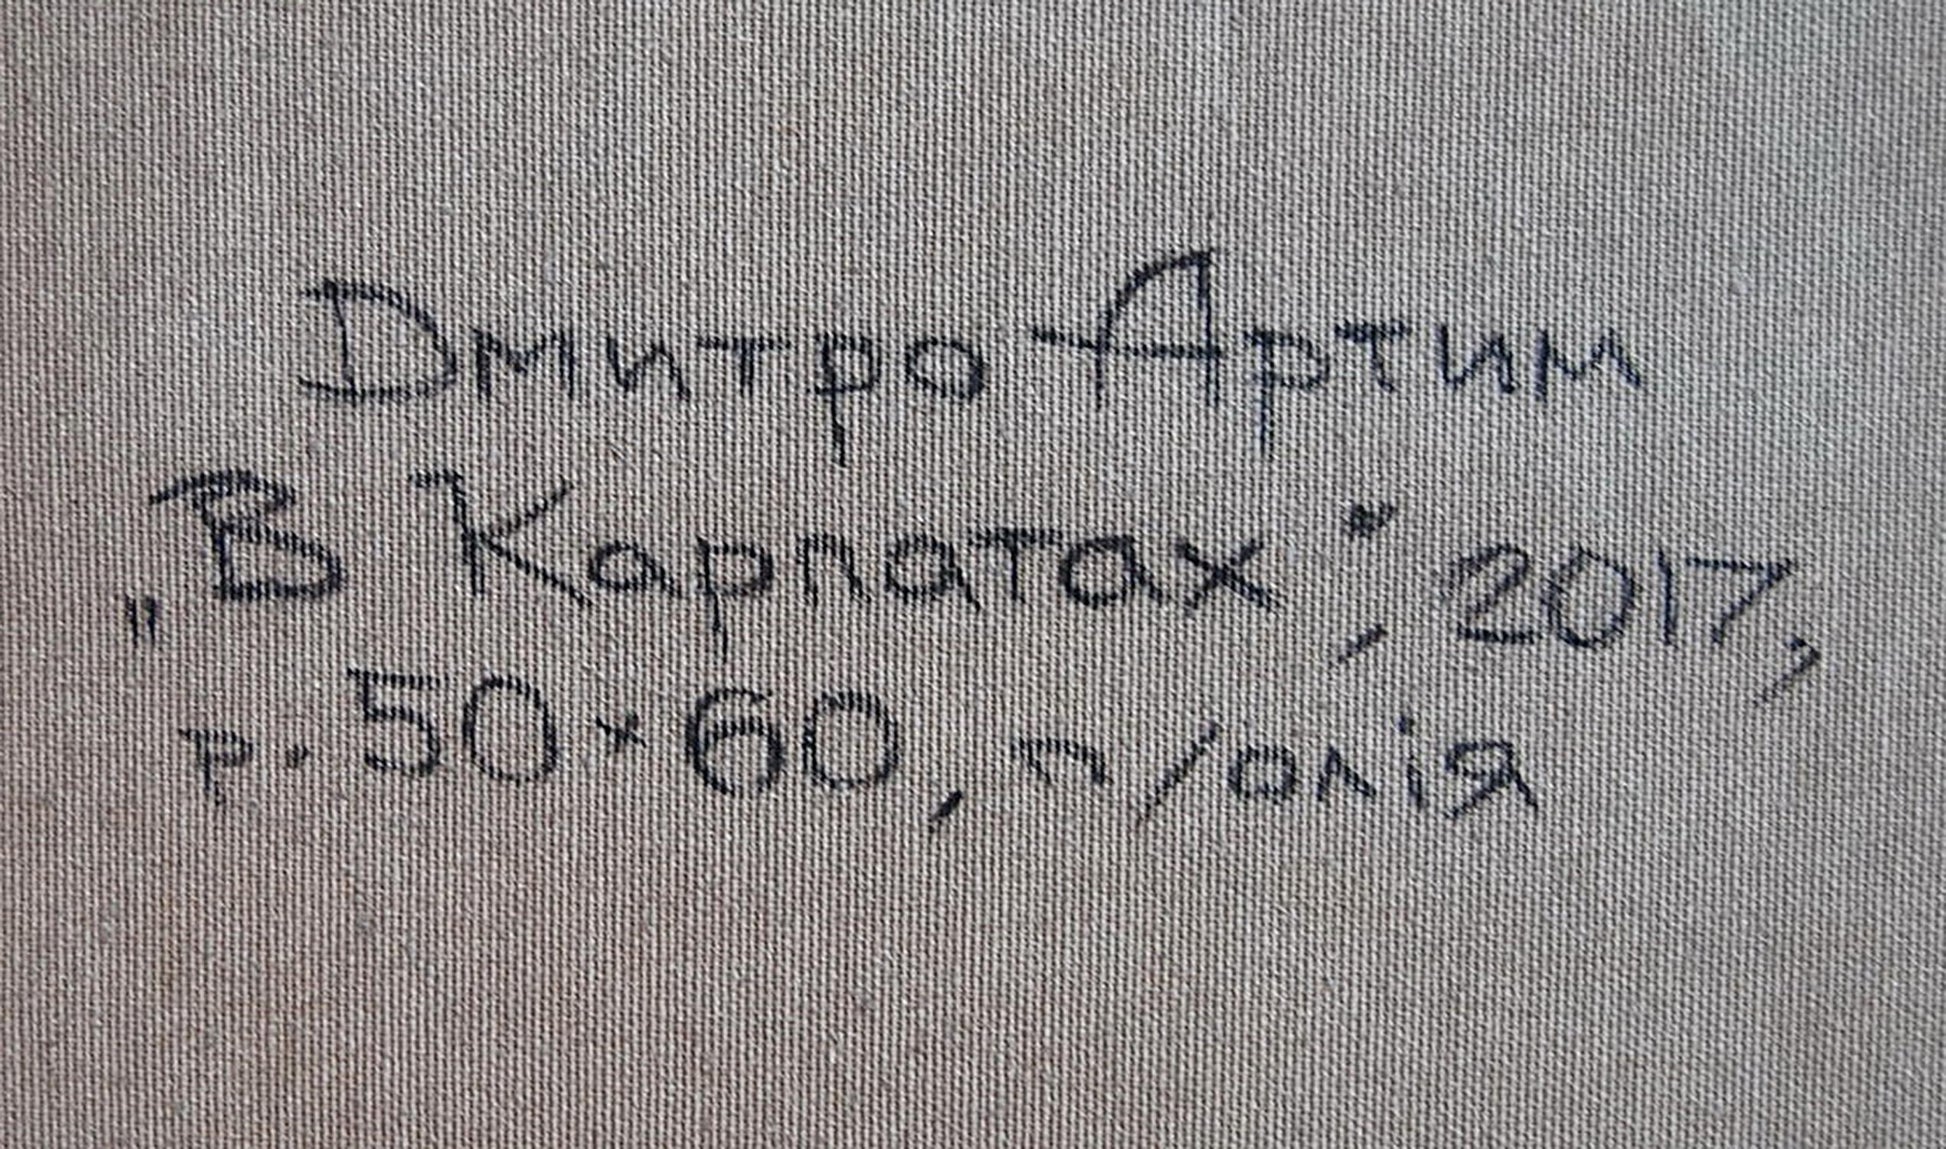 Дмитро Артим
„В Карпатах", 2017,
р. 50×60, п/олія